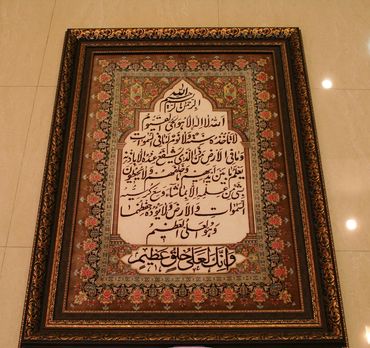 بسم الله
الرحمن الرحيم
الله لا اله الا هو الحي القيوم
لا تاخذه سنة ولا نوم له ما في السموات
وما في الارض من ذا الذي يشفع عنده الا باذنه
يعلم ما بين ايديهم وما خلفهم ولا يحيطون
بشيء من علمه الا بما شاء وسع كرسيه
السموات والارض ولا يؤده حفظهما
وهو العلي العظيم
وانك لعلى خلق عظيم